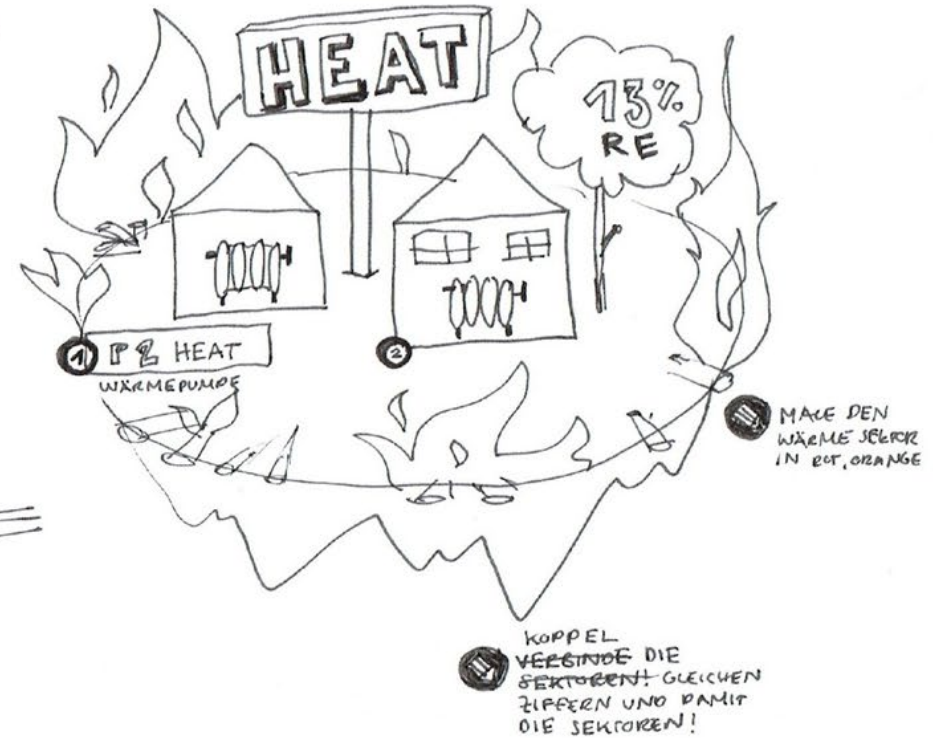 HEAT
13%
RE
1 P2 HEAT
WÄRMEPUMPE
2
MALE DEN
WÄRME SEKTOR
IN ROT, ORANGE
KOPPEL
VERBINDE DIE
SEKTOREN! GLEICHEN
ZIFFERN UND DAMIT
DIE SEKTOREN!